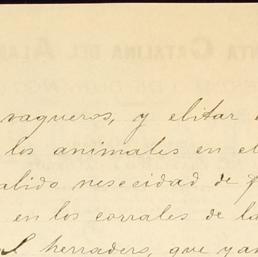 vaqueros, y elitar
los animales en el
alido nesecidad de
en los corrales de la
herradero, que ya